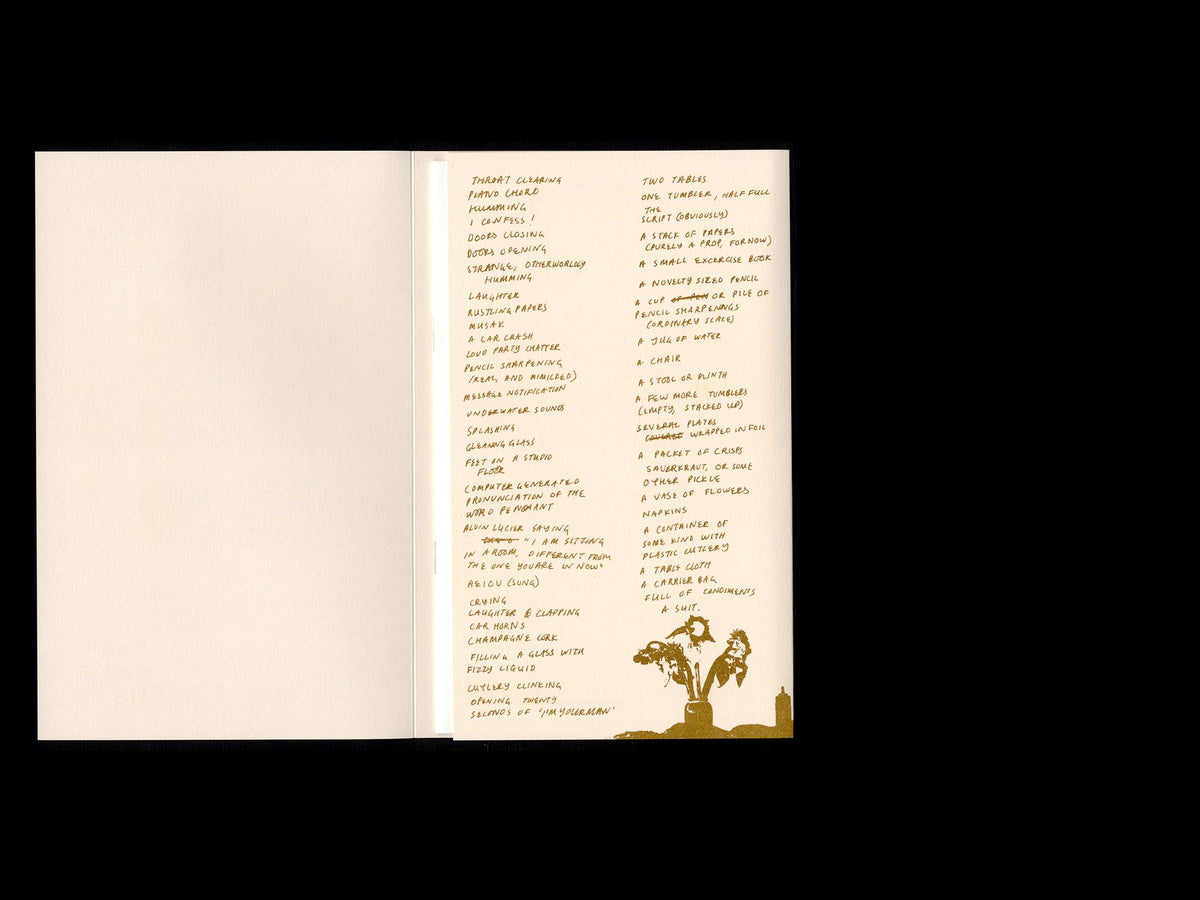 THROAT CLEARING
PIANO CHORD
HUMMING
I CONFESS!
DOORS CLOSING
DOORS OPENING
STRANGE, OTHERWORLDLY
HUMMING
LAUGHTER
RUSTLING PAPERS
MUSAK
A CAR CRASH
LOUD PARTY CHATTER
PENCIL SHARPENING
(REAL, AND MIMICKED)
MESSAGE NOTIFICATION
UNDERWATER SOUNDS
SPLASHING
CLEANING GLASS
FEET ON A STUDIO
FLOOR
COMPUTER GENERATED
PRONUNCIATION OF THE
WORD PENCHANT
ALVIN LUCIER SAYING
"I AM SITTING
IN A ROOM, DIFFERENT FROM
THE ONE YOU ARE IN NOW"
AEIOU (SUNG)
CRYING
LAUGHTER & CLAPPING
CAR HORNS
CHAMPAGNE CORK
FILLING A GLASS WITH
FIZZY LIQUID
CUTLERY CLINKING
OPENING TWENTY
SECONDS OF 'I'M YOUR MAN'
TWO TABLES
ONE TUMBLER, HALF FULL
THE
SCRIPT (OBVIOUSLY)
A STACK OF PAPERS
(PURELY A PROP, FOR NOW)
A SMALL EXCERCISE BOOK
A NOVELTY SIZED PENCIL
A CUP OF PEN OR PILE OF
PENCIL SHARPENINGS
(ORDINARY SCALE)
A JUG OF WATER
A CHAIR
A STOOL OR PLINTH
A FEW MORE TUMBLERS
(EMPTY, STACKED UP)
SEVERAL PLATES
COVERED WRAPPED IN FOIL
A PACKET OF CRISPS
SAUERKRAUT, OR SOME
OTHER PICKLE
A VASE OF FLOWERS
NAPKINS
A CONTAINER OF
SOME KIND WITH
PLASTIC CUTLERY
A TABLE CLOTH
A CARRIER BAG
FULL OF CONDIMENTS
A SUIT.